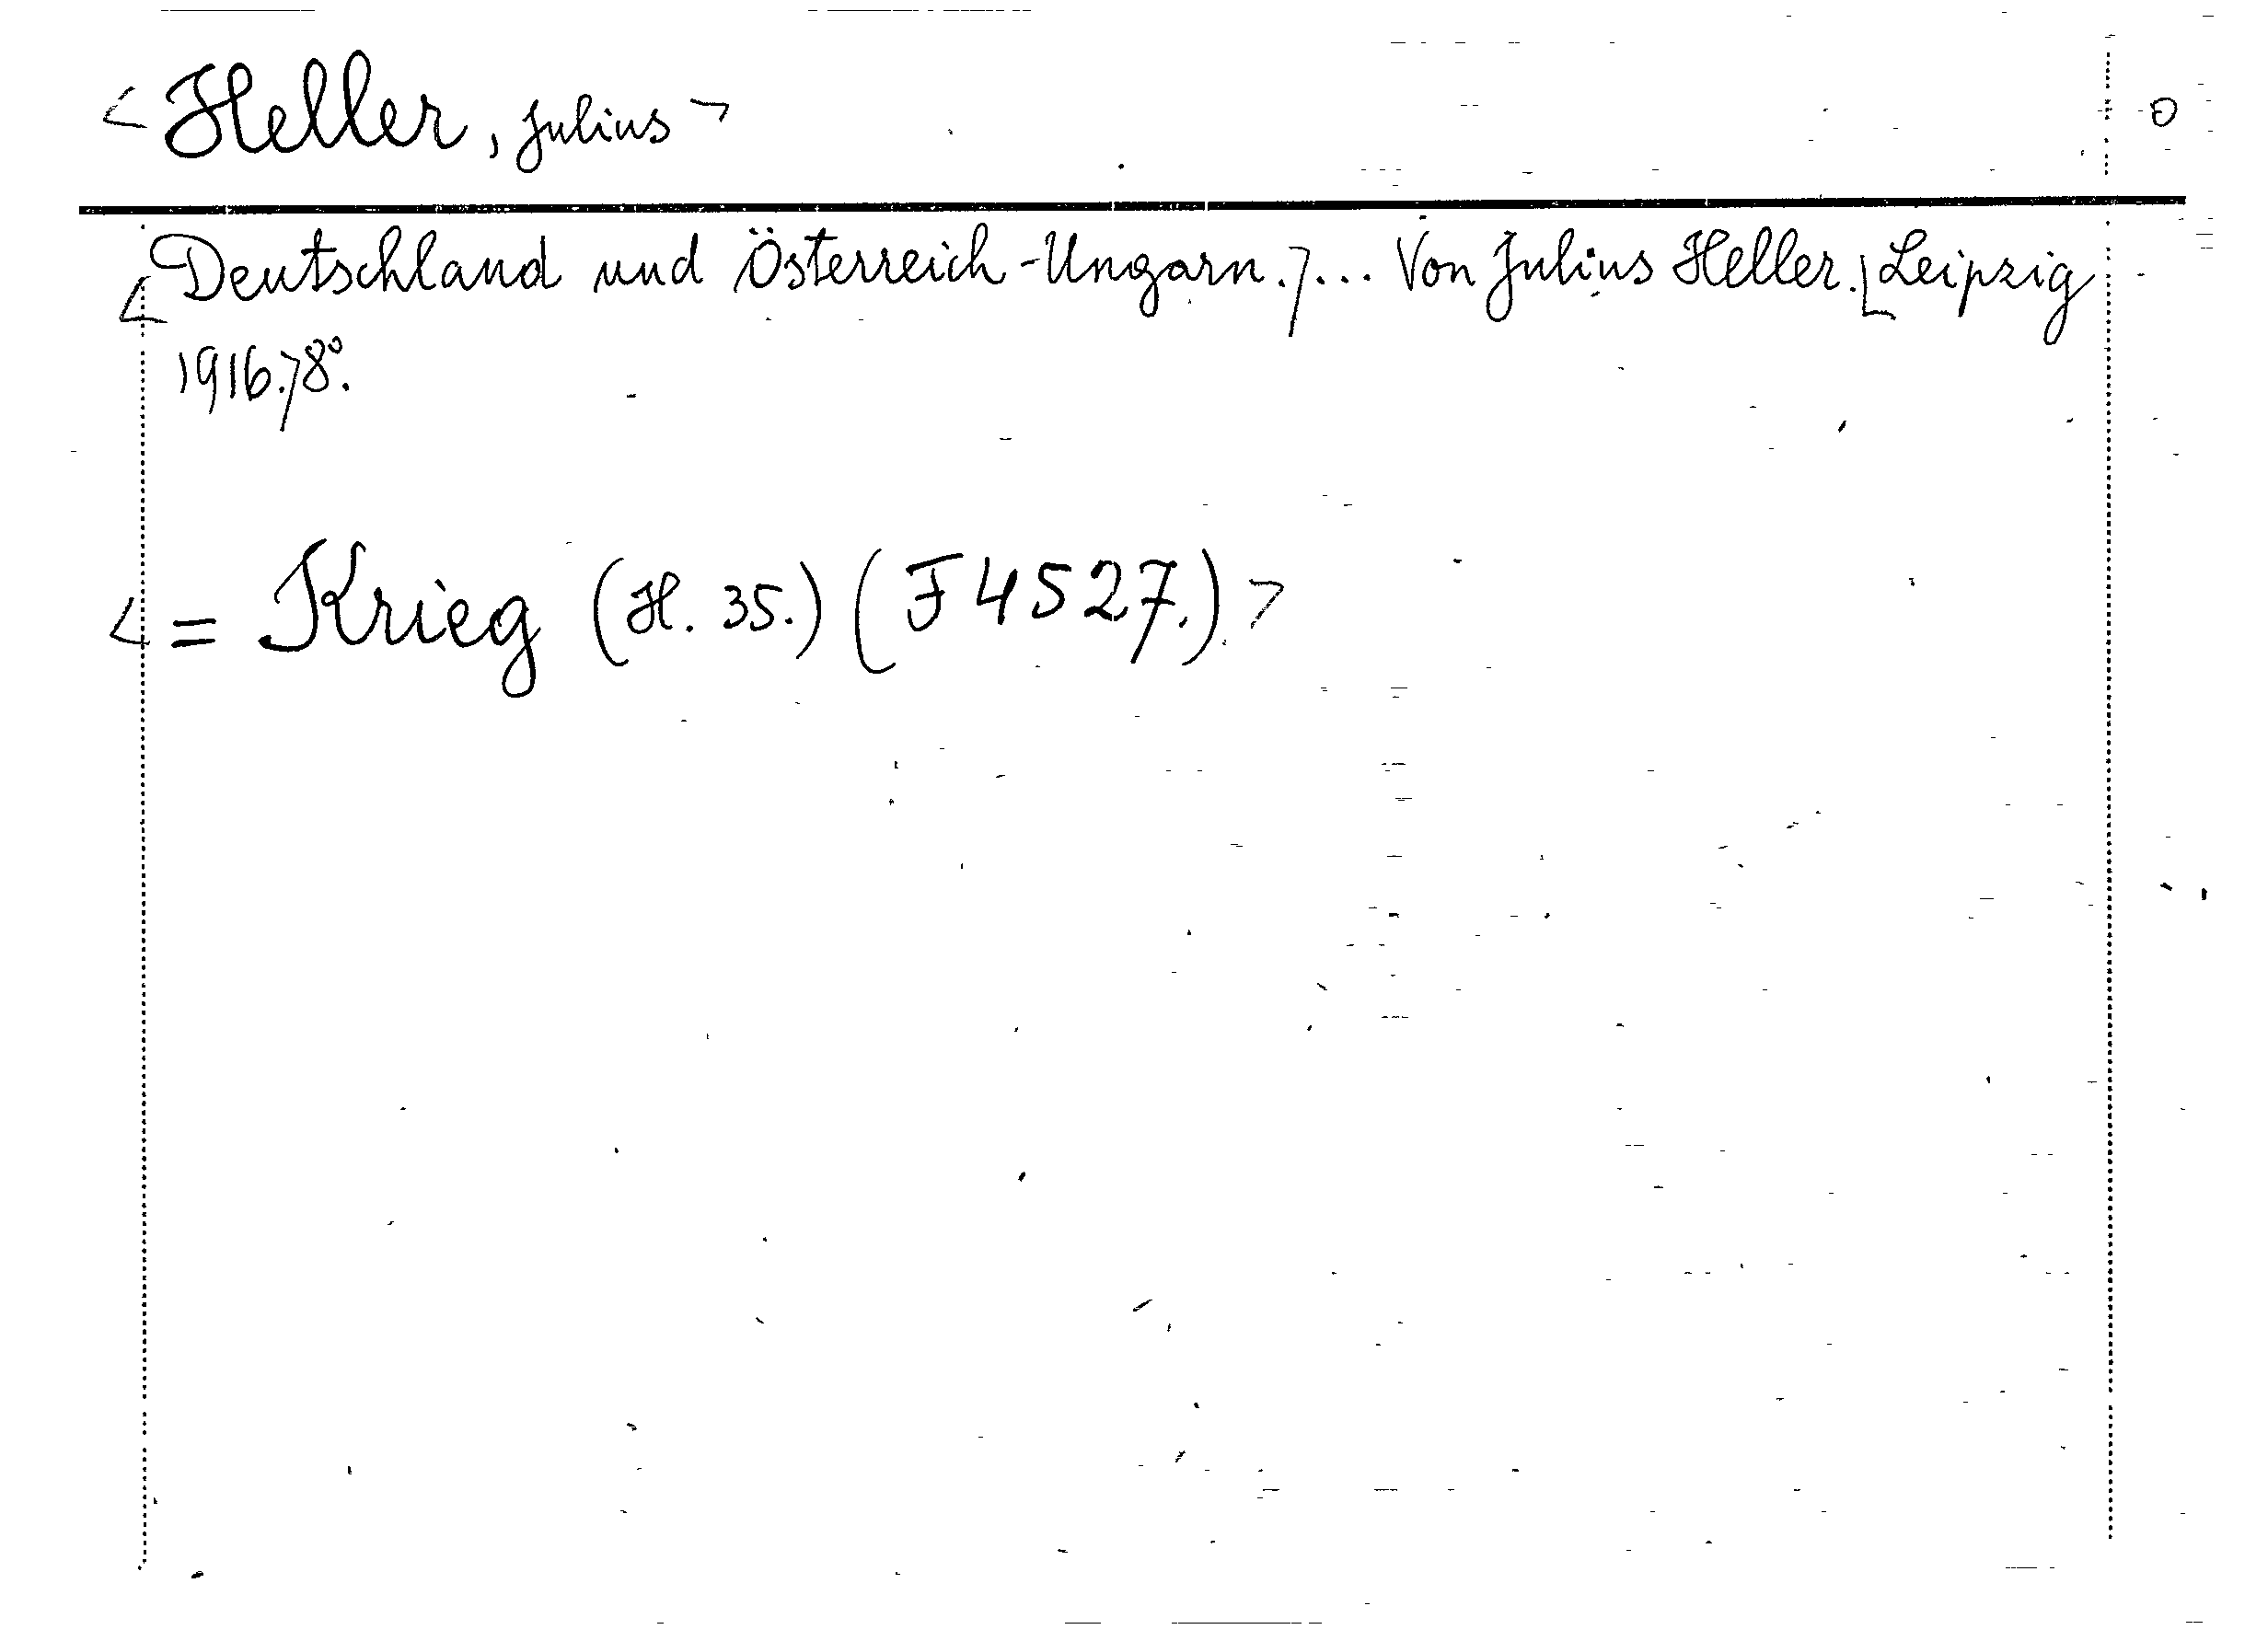 <Heller, Julius> 0
<Deutschland und Österreich-Ungarn.>... Von Julius Heller.<Leipzig
1916.>8°.
<= Krieg (H. 35.) (F 4527.)>